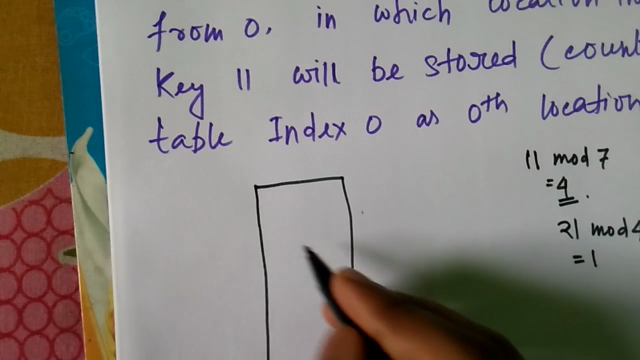 from 0, in which location
Key 11 will be stored (count
table Index 0 as 0th location
11 mod 7
= 4.
21 mod 4
= 1